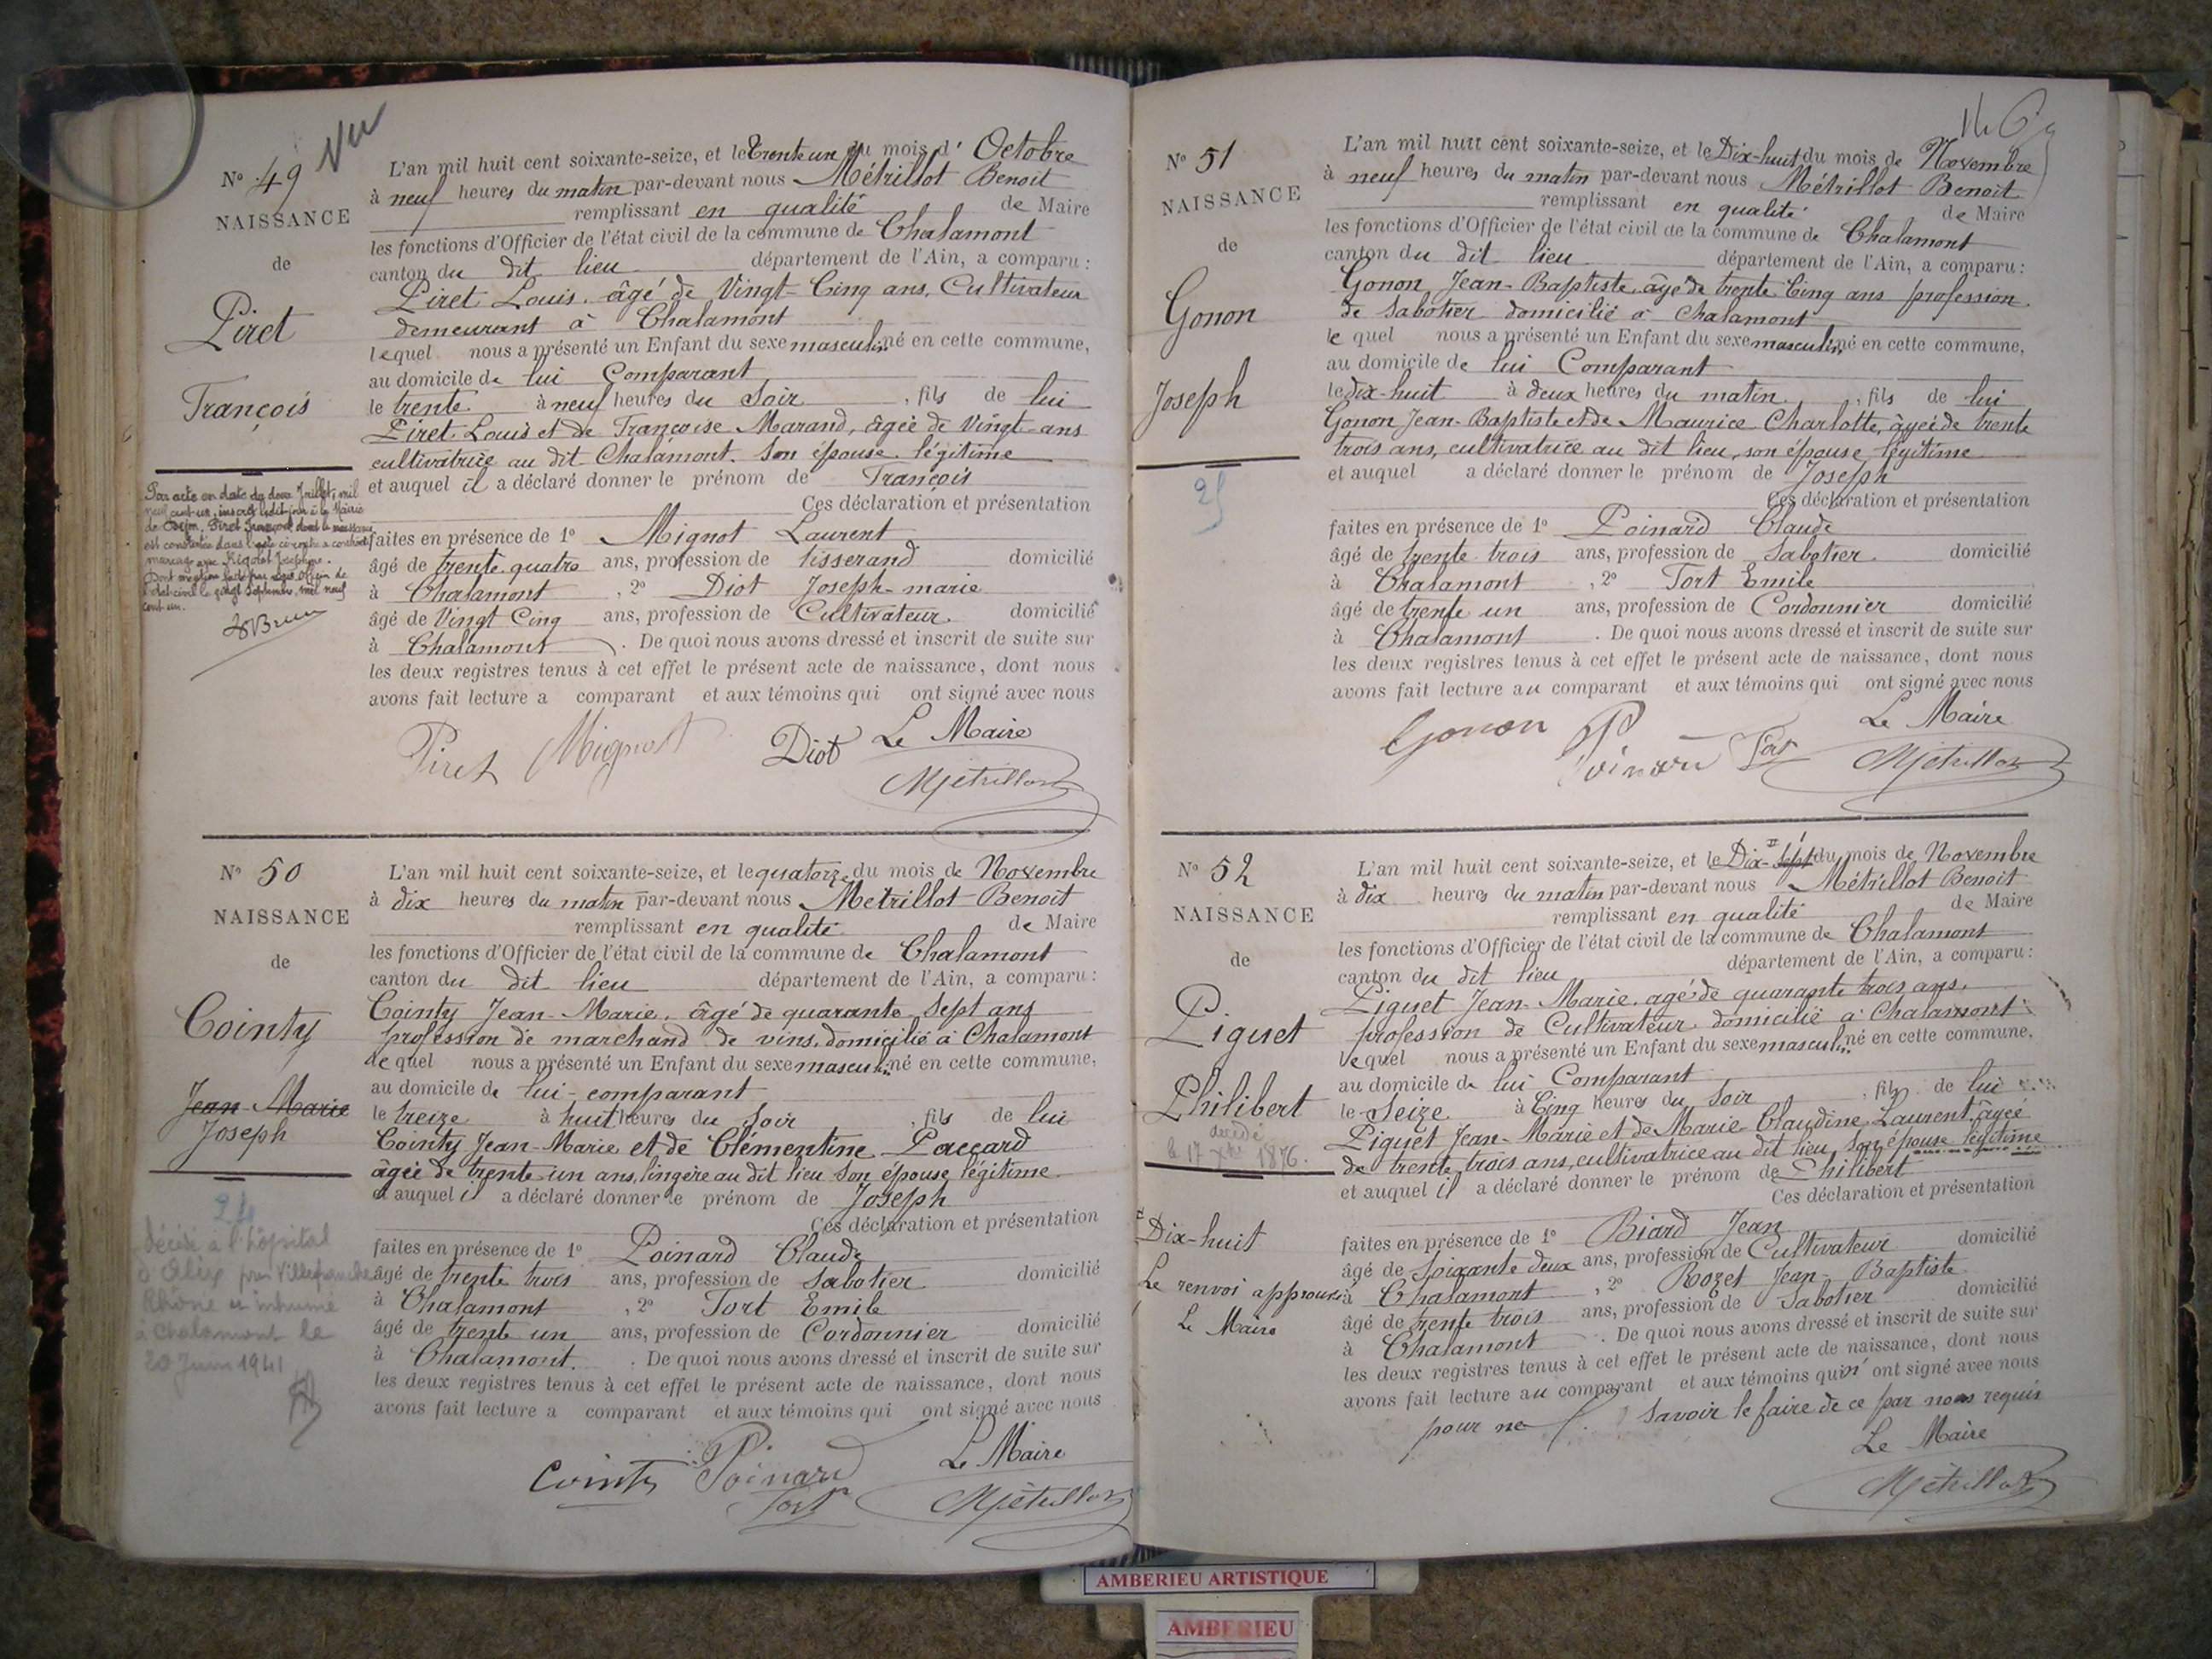 Vu
N° 49
NAISSANCE
de
Piret
François
L'an mil huit cent soixante-seize, et le trente un du mois d' Octobre
à neuf heures du matin par-devant nous Métrillot Benoit
remplissant en qualité de Maire
les fonctions d'Officier de l'état civil de la commune de Chalamont
canton du dit lieu département de l'Ain, a comparu :
Piret Louis. âgé de Vingt-Cinq ans, Cultivateur
demeurant à Chalamont
lequel nous a présenté un Enfant du sexe masculin né en cette commune,
au domicile de lui Comparant
le trente à neuf heures du Soir , fils de lui
Piret Louis et de Françoise Marand, âgée de Vingt-ans
cultivatrice au dit Chalamont. Son épouse légitime
et auquel il a déclaré donner le prénom de François
Ces déclaration et présentation
faites en présence de 1° Mignot Laurent
âgé de trente quatre ans, profession de tisserand domicilié
à Chalamont , 2° Diot Joseph-marie
âgé de Vingt Cinq ans, profession de Cultivateur domicilié
à Chalamont . De quoi nous avons dressé et inscrit de suite sur
les deux registres tenus à cet effet le présent acte de naissance, dont nous
avons fait lecture a comparant et aux témoins qui ont signé avec nous
Piret Mignot Diot Le Maire
Métrillot
Par acte en date du deux Juillet, mil
neuf cent un, inscrit ledit jour à la Mairie
de Piret François dont la naissance
est constatée dans l'acte ci-contre a contracté
mariage avec Joséphine.
Dont mention faite par nous officier de
l'état-civil le vingt Septembre, mil neuf
cent un.
N° 50
NAISSANCE
de
Cointy
Jean-Marie
Joseph
24
décédé à l'hôpital
d'Alix près Villefranche
Rhône et inhumé
à Chalamont le
20 Juin 1941
L'an mil huit cent soixante-seize, et le quatorze du mois de Novembre
à dix heures du matin par-devant nous Métrillot Benoit
remplissant en qualité de Maire
les fonctions d'Officier de l'état civil de la commune de Chalamont
canton du dit lieu département de l'Ain, a comparu :
Cointy Jean-Marie. âgé de quarante sept ans
profession de marchand de vins, domicilié à Chalamont
lequel nous a présenté un Enfant du sexe masculin né en cette commune,
au domicile de lui-comparant
le treize à huit heures du Soir , fils de lui
Cointy Jean-Marie et de Clémentine Paccard
âgée de trente un ans, lingère au dit lieu Son épouse légitime
et auquel il a déclaré donner le prénom de Joseph
Ces déclaration et présentation
faites en présence de 1° Poinard Claude
âgé de trente trois ans, profession de Sabotier domicilié
à Chalamont , 2° Tort Emile
âgé de trente un ans, profession de Cordonnier domicilié
à Chalamont . De quoi nous avons dressé et inscrit de suite sur
les deux registres tenus à cet effet le présent acte de naissance, dont nous
avons fait lecture a comparant et aux témoins qui ont signé avec nous
Cointy Poinard Le Maire
Tort Métrillot
N° 51
NAISSANCE
de
Gonon
Joseph
25
L'an mil huit cent soixante-seize, et le Dix-huit du mois de Novembre
à neuf heures du matin par-devant nous Métrillot Benoit
remplissant en qualité de Maire
les fonctions d'Officier de l'état civil de la commune de Chalamont
canton du dit lieu département de l'Ain, a comparu :
Gonon Jean-Baptiste, âgé de trente Cinq ans profession
de Sabotier domicilié à Chalamont
le quel nous a présenté un Enfant du sexe masculin né en cette commune,
au domicile de lui Comparant
le dix-huit à deux heures du matin , fils de lui
Gonon Jean-Baptiste et de Maurice Charlotte, âgée de trente
trois ans, cultivatrice au dit lieu, son épouse légitime
et auquel a déclaré donner le prénom de Joseph
Ces déclaration et présentation
faites en présence de 1° Poinard Claude
âgé de trente trois ans, profession de Sabotier domicilié
à Chalamont , 2° Tort Emile
âgé de trente un ans, profession de Cordonnier domicilié
à Chalamont . De quoi nous avons dressé et inscrit de suite sur
les deux registres tenus à cet effet le présent acte de naissance, dont nous
avons fait lecture au comparant et aux témoins qui ont signé avec nous
Gonon Poinard Tort Le Maire
Métrillot
N° 52
NAISSANCE
de
Piguet
Philibert
décédé
le 17 Xbre 1876.
Dix-huit
Le renvoi approuvé
Le Maire
L'an mil huit cent soixante-seize, et le Dix-sept du mois de Novembre
à dix heures du matin par-devant nous Métrillot Benoit
remplissant en qualité de Maire
les fonctions d'Officier de l'état civil de la commune de Chalamont
canton du dit lieu département de l'Ain, a comparu :
Piguet Jean-Marie, agé de quarante trois ans,
profession de Cultivateur domicilié à Chalamont
lequel nous a présenté un Enfant du sexe masculin né en cette commune,
au domicile de lui Comparant
le Seize à Cinq heures du Soir , fils de lui
Piguet Jean-Marie et de Marie Claudine Laurent, âgée
de trente trois ans, cultivatrice au dit lieu, Son épouse légitime
et auquel il a déclaré donner le prénom de Philibert
Ces déclaration et présentation
faites en présence de 1° Biard Jean
âgé de Soixante deux ans, profession de Cultivateur domicilié
à Chalamont , 2° Rozet Jean-Baptiste
âgé de trente trois ans, profession de Sabotier domicilié
à Chalamont . De quoi nous avons dressé et inscrit de suite sur
les deux registres tenus à cet effet le présent acte de naissance, dont nous
avons fait lecture au comparant et aux témoins qui n'ont signé avec nous
pour ne savoir le faire de ce par nous requis
Le Maire
Métrillot
AMBERIEU ARTISTIQUE
AMBERIEU